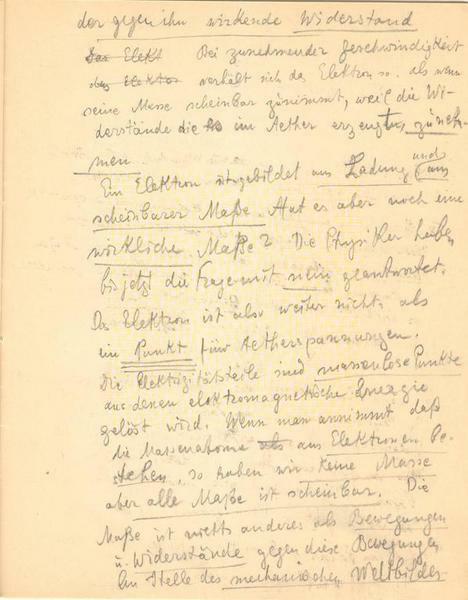 der gegen ihn wirkende Widerstand
Das Elekt Bei zunehmender Geschwindigkeit
das Elektron verhält sich das Elektron so als wenn
seine Masse scheinbar zunimmt, weil die Wi-
derstände die im Aether erzeugt zuneh-
men
Ein Elektron ist gebildet aus Ladung und aus
scheinbarer Maße. Hat es aber noch eine
wirkliche Maße? Die Physiker haben
bis jetzt die Frage mit nein geantwortet.
Das Elektron ist also weiter nichts als
ein Punkt für Aetherspannungen.
Die Elektrizitätsteile sind massenlose Punkte
aus denen elektromagnetische Energie
gelöst wird. Wenn man annimmt daß
die Massenatome als aus Elektronen be-
stehen, so haben wir keine Masse
aber alle Maße ist scheinbar. Die
Maße ist nichts anderes als Bewegungen
u. Widerstände gegen diese Bewegungen
An Stelle des mechanischen Weltbildes